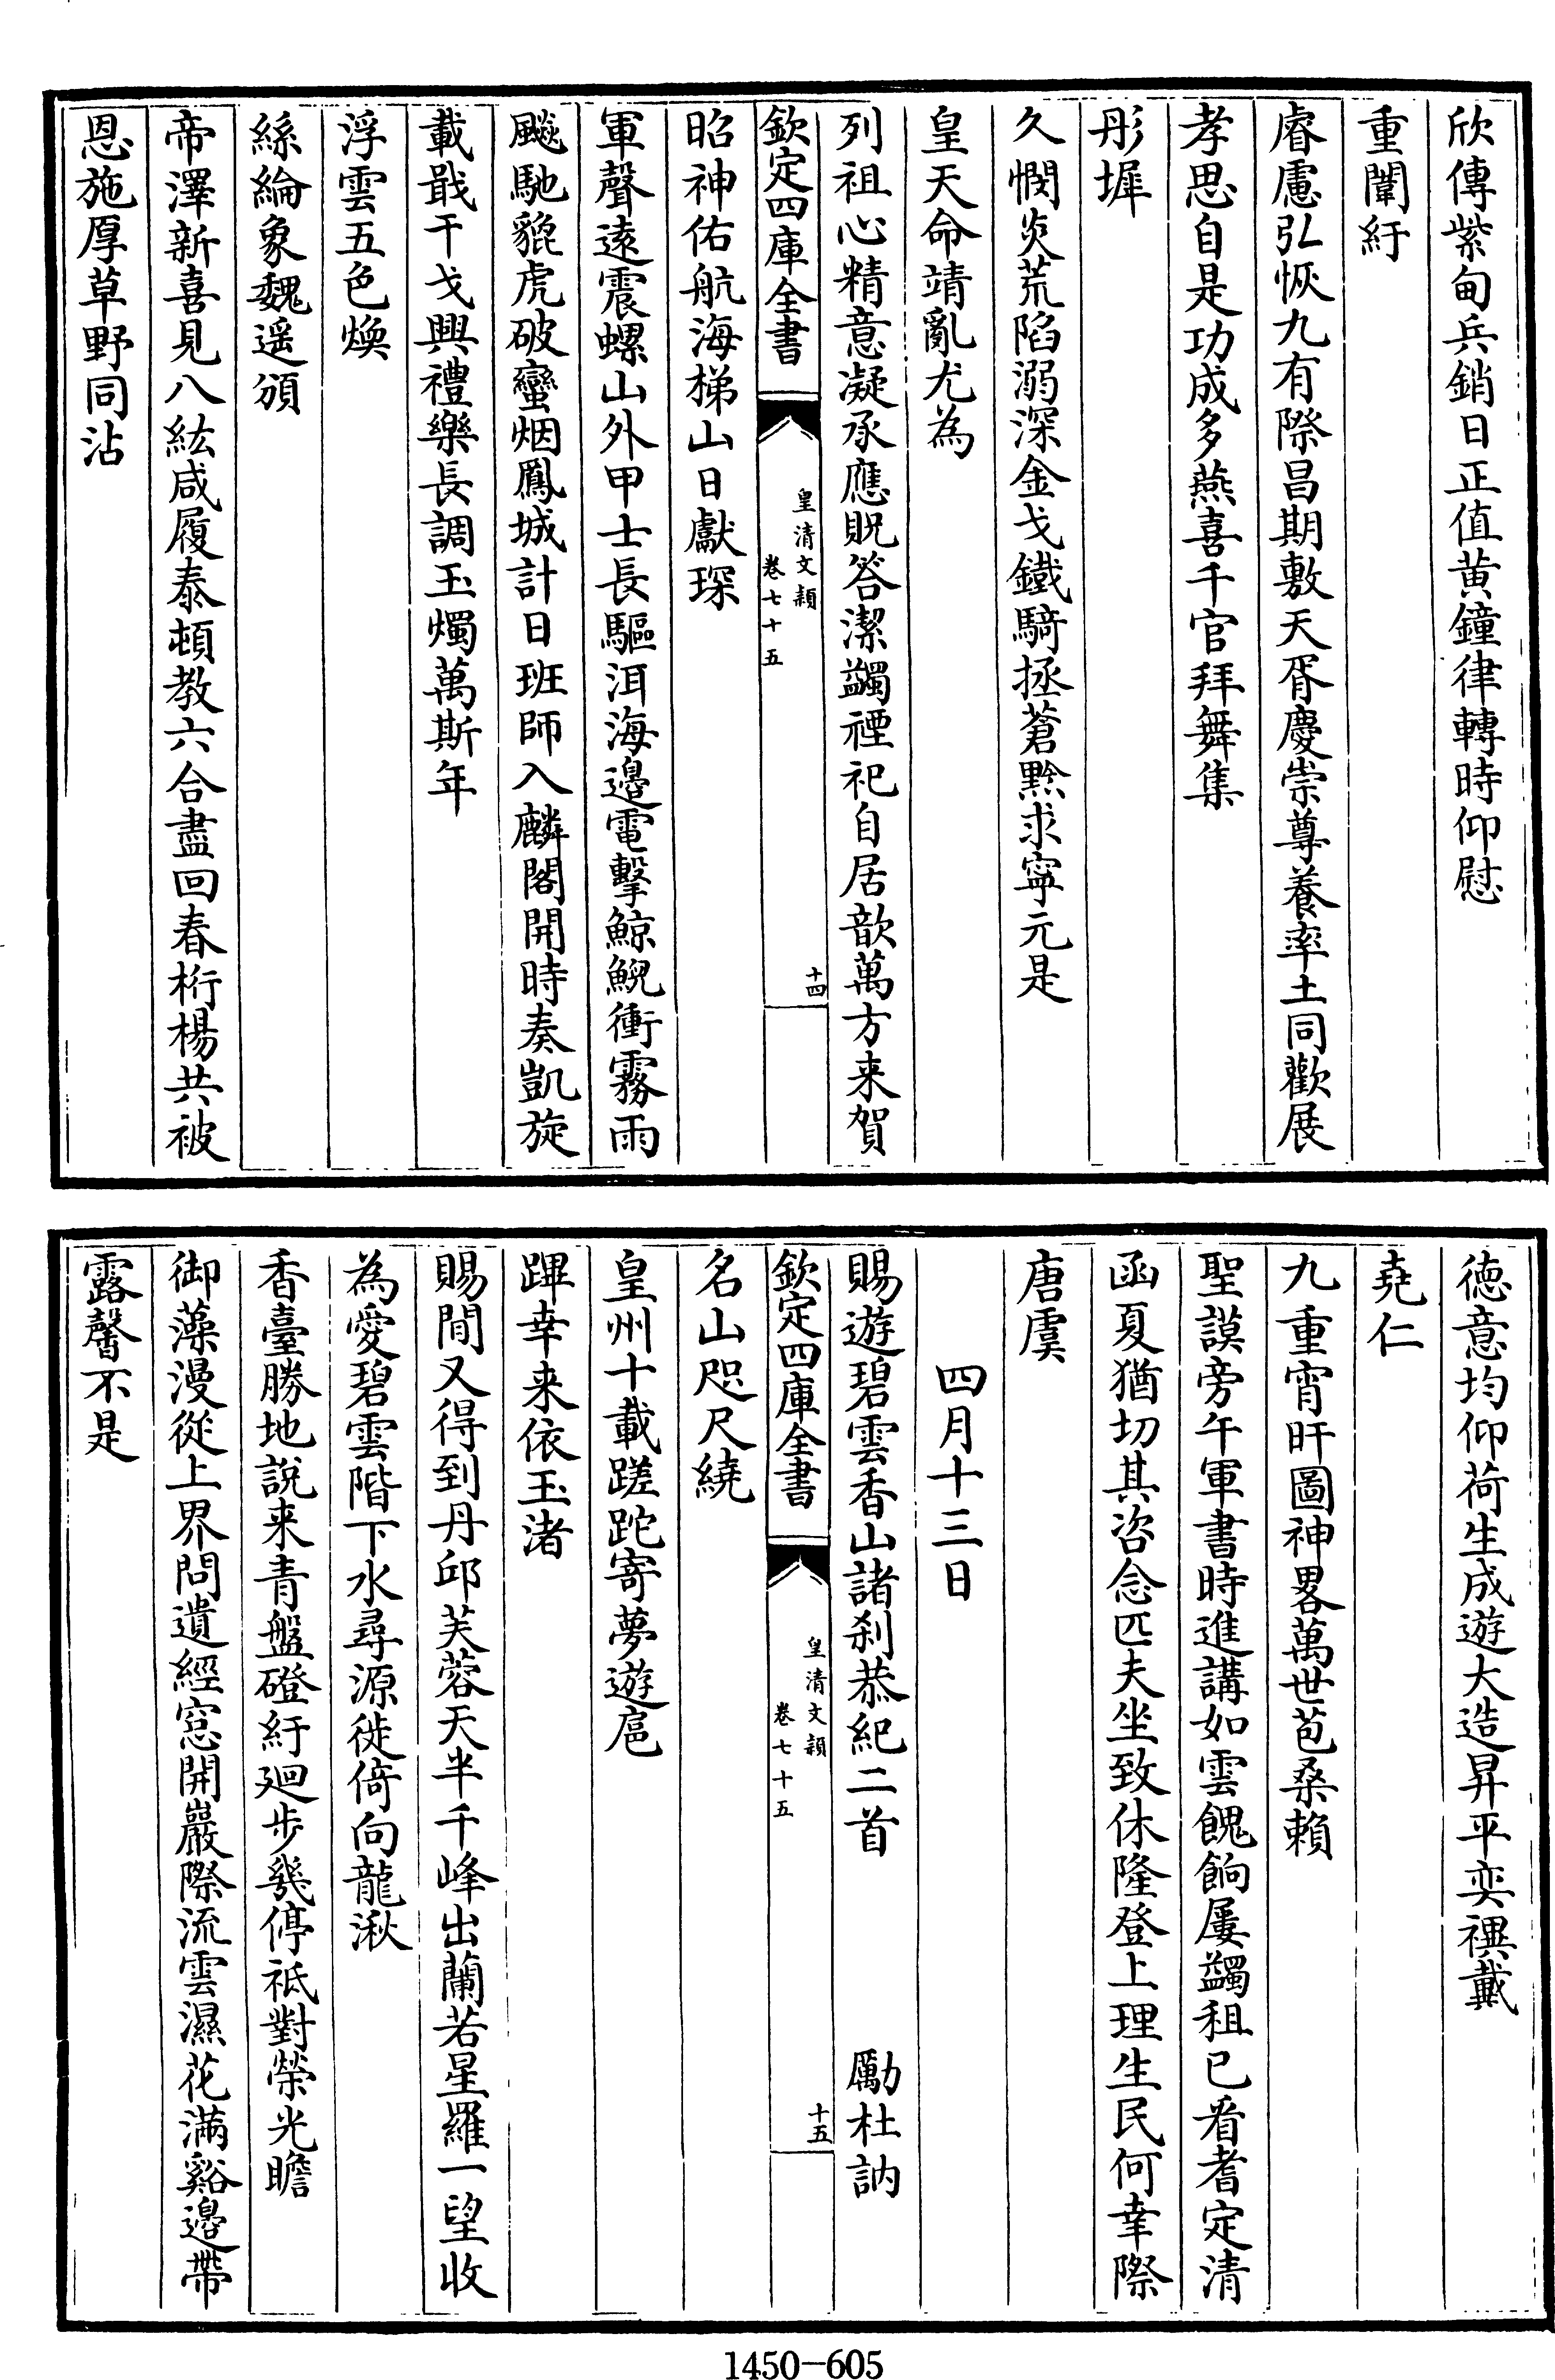 欣傳紫甸兵銷日正值黃鐘律轉時仰慰
重闈紆
睿慮弘恢九有際昌期敷天胥慶崇尊養率土同歡展
孝思自是功成多燕喜千官拜舞集
彤墀
久憫炎荒陷溺深金戈鐵騎拯蒼黔求寧元是
皇天命靖亂尤為
列祖心精意凝承應貺答潔蠲禋祀自居歆萬方来賀
欽定四庫全書
皇清文頴
卷七十五
十四
昭神佑航海梯山日獻琛
軍聲遠震螺山外甲士長驅洱海邊電擊鯨鯢衝霧雨
飈馳貔虎破蠻烟鳳城計日班師入麟閣開時奏凱旋
載戢干戈興禮樂長調玉燭萬斯年
浮雲五色煥
絲綸象魏遥頒
帝澤新喜見八紘咸履泰頓教六合盡回春桁楊共被
恩施厚草野同沾
德意均仰荷生成遊大造昇平奕禩戴
堯仁
九重宵旰圖神畧萬世苞桑賴
聖謨旁午軍書時進講如雲餽餉屢蠲租已看耆定清
函夏猶切其咨念匹夫坐致休隆登上理生民何幸際
唐虞
四月十三日
賜遊碧雲香山諸刹恭紀二首 勵杜訥
欽定四庫全書
皇清文頴
卷七十五
十五
名山咫尺繞
皇州十載蹉跎寄夢遊扈
蹕幸来依玉渚
賜閒又得到丹邱芙蓉天半千峰出蘭若星羅一望收
為愛碧雲階下水尋源徙倚向龍湫
香臺勝地說来青盤磴紆廻步幾停祗對榮光瞻
御藻漫從上界問遺經窓開巖際流雲濕花滿谿邊帶
露馨不是
1450—605